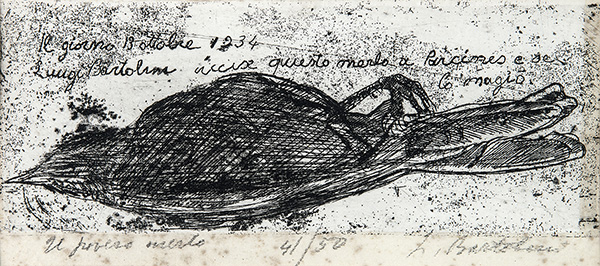 Il giorno 13 ottobre 1934
Luigi Bartolini uccise questo merlo a e se
lo mangiò
Il povero merlo 4/50 L. Bartolini